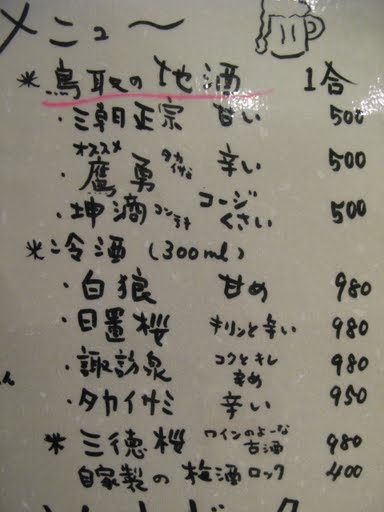 メニュ～
＊鳥取の地酒 1合
・三朝正宗 甘い 500
オススメ
・鷹勇 タカイサミ 辛い 500
・坤滴 コンテキ コージくさい 500
＊冷酒 (300ml)
・白狼 甘め 980
・日置桜 キリンと辛い 980
・諏訪泉 コクとキレ 辛め 980
・タカイサミ 辛い 950
＊三徳桜 ワインのよーな古酒 980
自家製の梅酒ロック 400